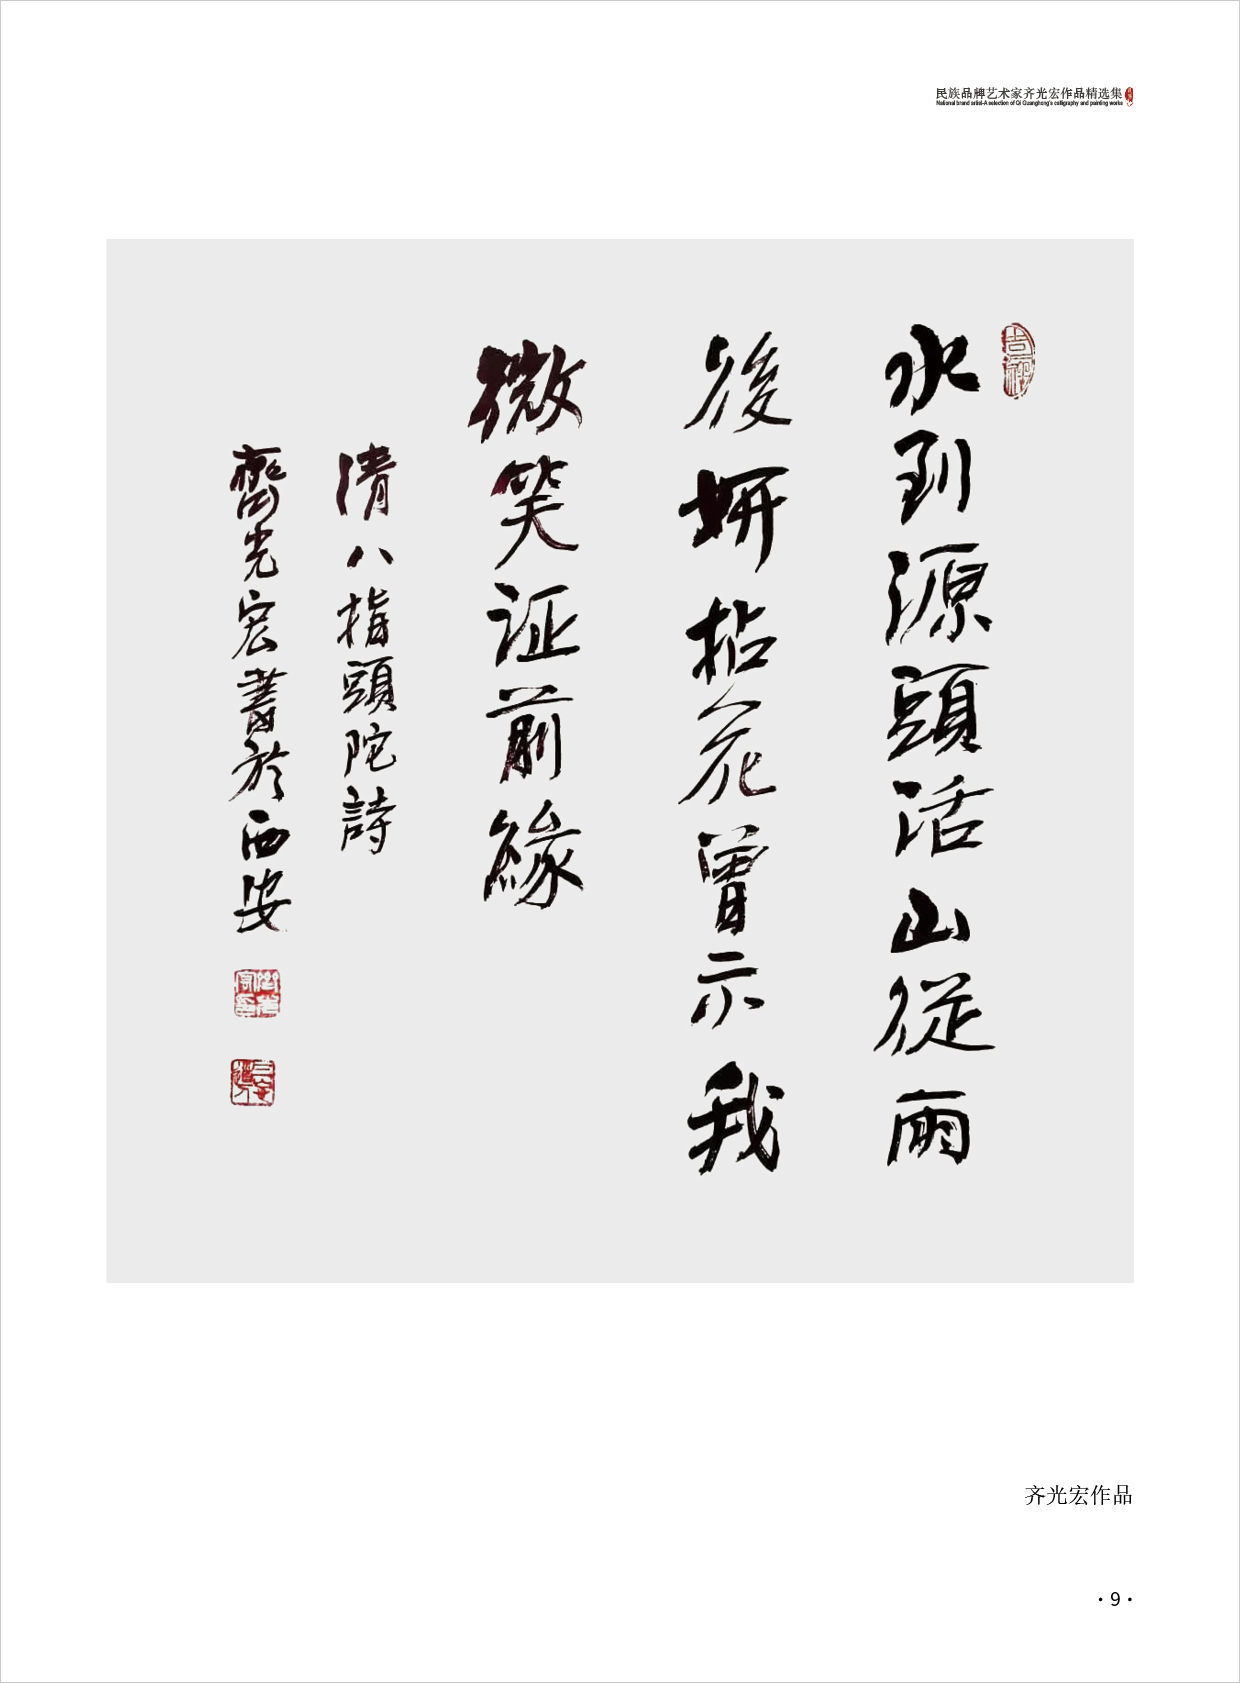 民族品牌艺术家齐光宏作品精选集
National brand artist-A selection of Qi Guanghong's calligraphy and painting works
吉祥
水到源頭活山從雨
後妍拈花曾示我
微笑证前緣
清八指頭陀詩
齊光宏書於西安
齐光宏作品
·9·